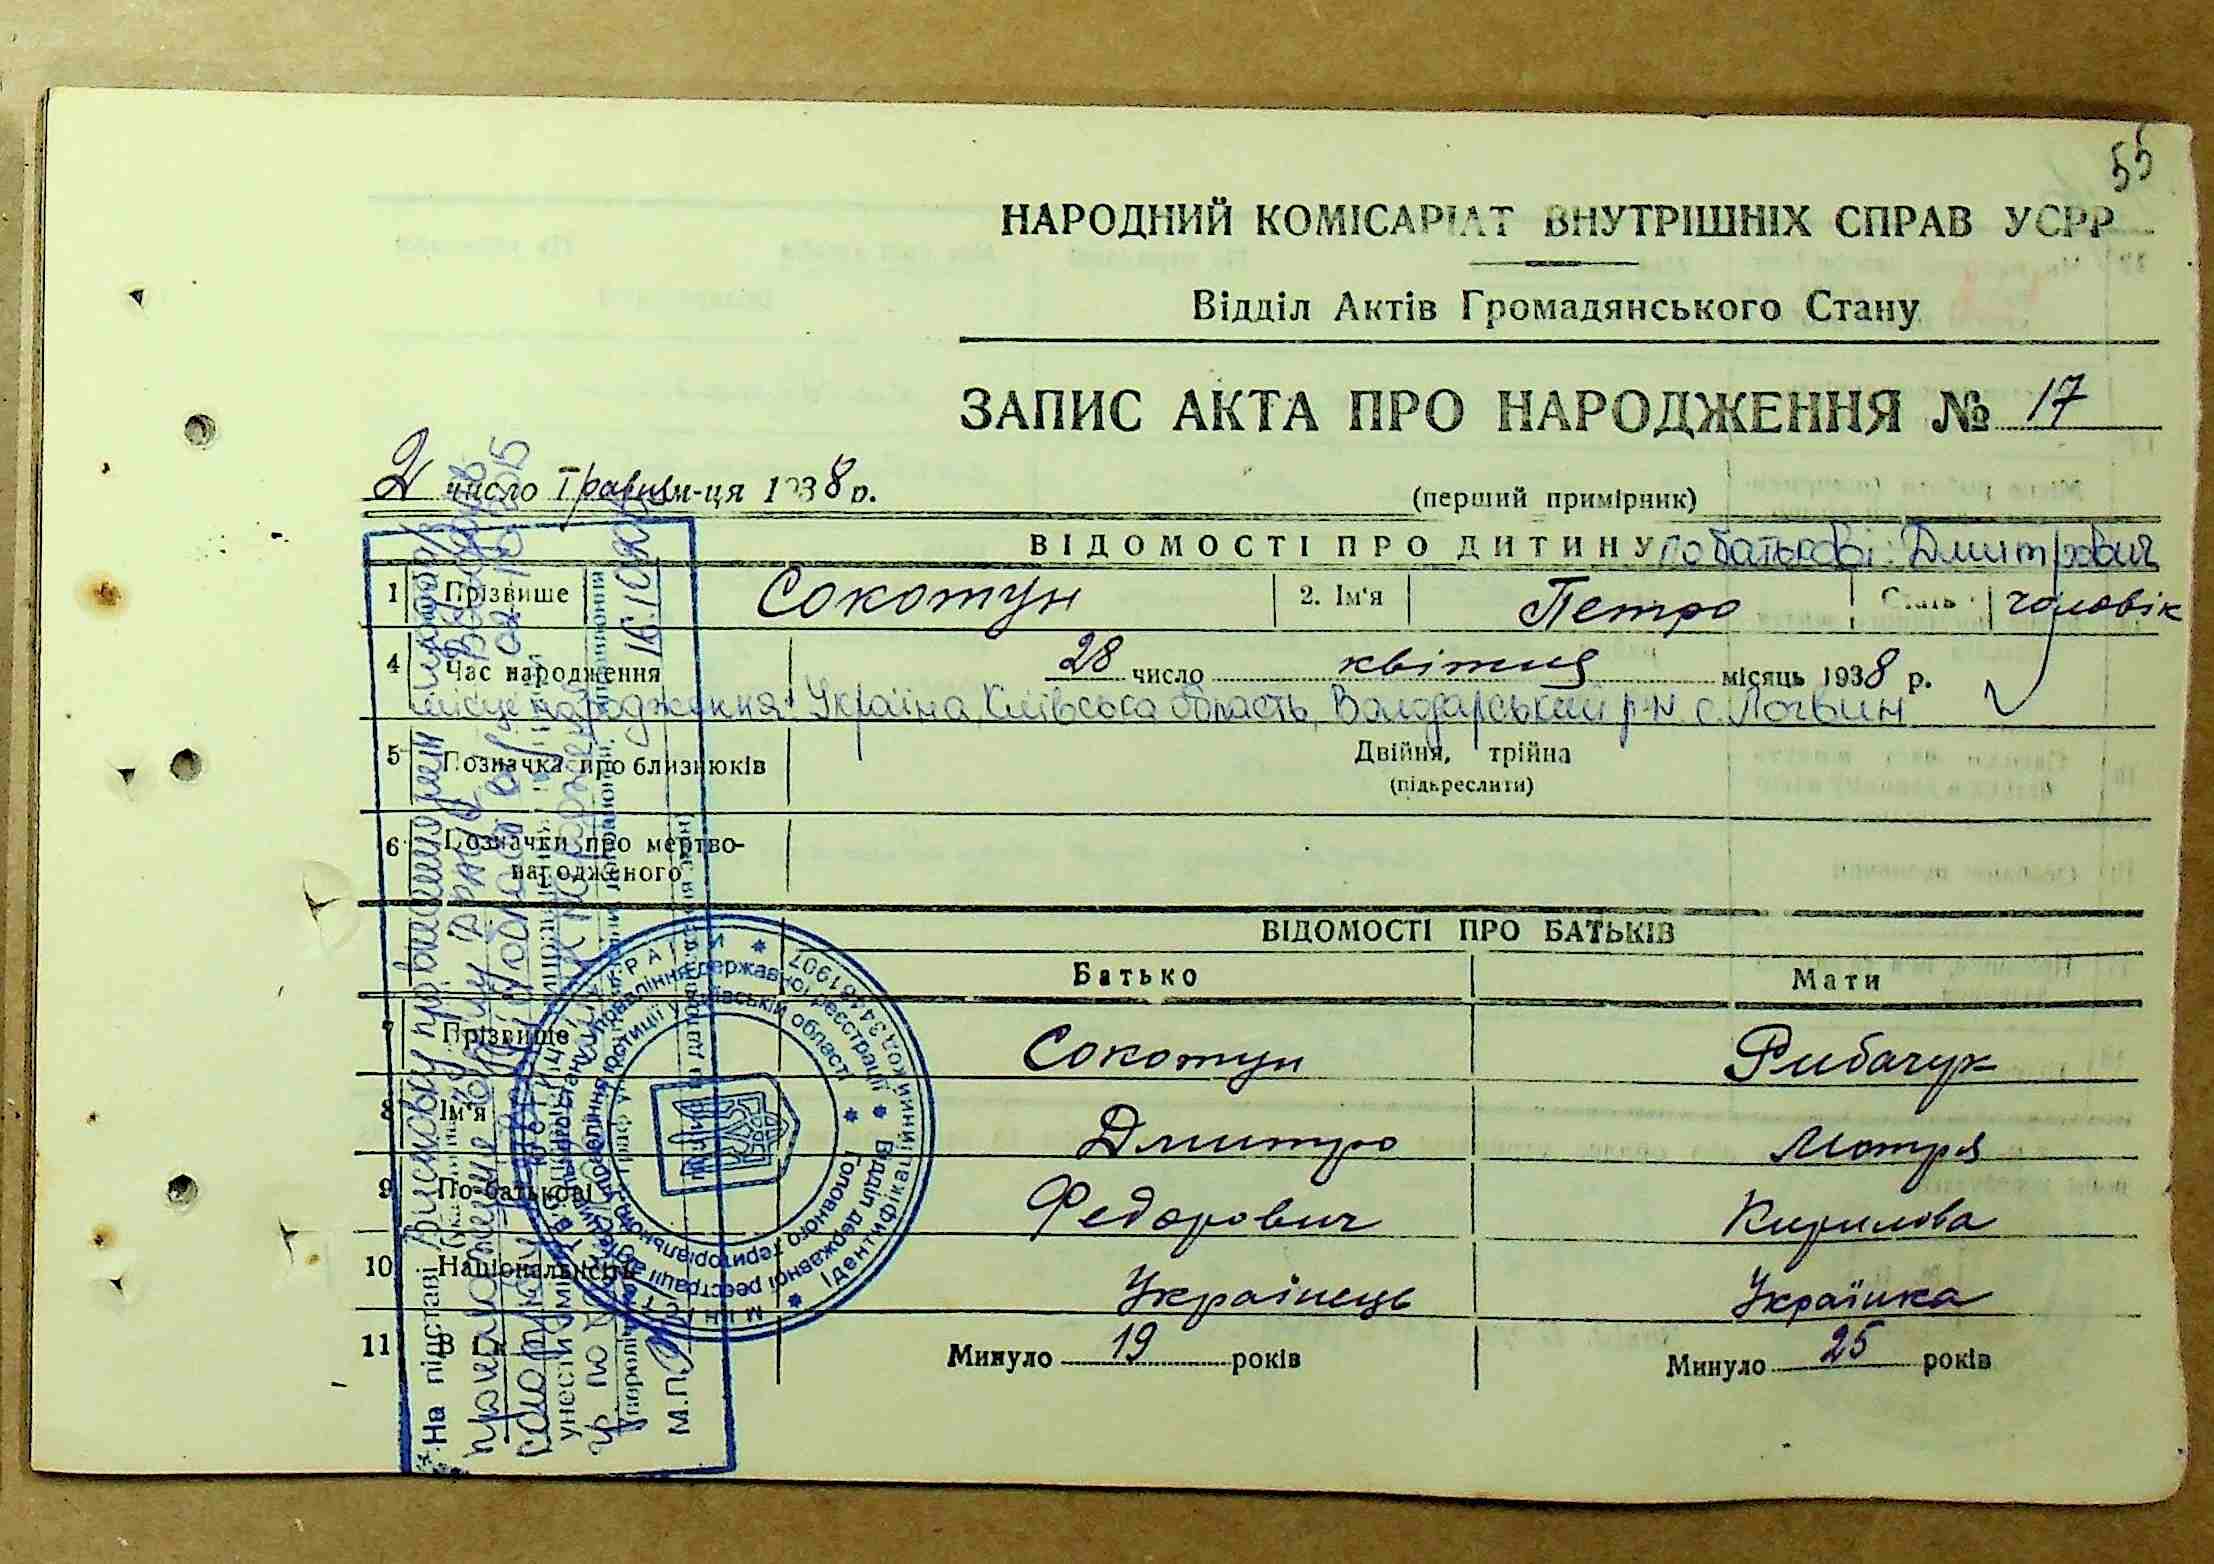 55
НАРОДНИЙ КОМІСАРІАТ ВНУТРІШНІХ СПРАВ УСРР
Відділ Актів Громадянського Стану
ЗАПИС АКТА ПРО НАРОДЖЕННЯ № 17
2 число Травня м-ця 1938 р.
(перший примірник)
ВІДОМОСТІ ПРО ДИТИНУ по батькові: Дмитрович
1 Прізвище Сокотун 2. Ім'я Петро Стать чоловік
4 Час народження 28 число квітня місяць 1938 р.
місце народження: Україна, Київська область, Володарський р-н с. Логвин
5 Позначка про близнюків Двійня, трійна
(підкреслити)
6 Позначки про мертво-
народженого
ВІДОМОСТІ ПРО БАТЬКІВ
Батько Мати
7 Прізвище Сокотун Рибачук
8 Ім'я Дмитро Мотря
9 По-батькові Федорович Кирилова
10 Національність Українець Українка
11 Вік Минуло 19 років Минуло 25 років
На підставі Висновку про внесення змін
унести зміни
М.П.
16.10.
Ідентифікаційний код 34481907
Відділ державної реєстрації
Головного територіального управління юстиції у Київській області